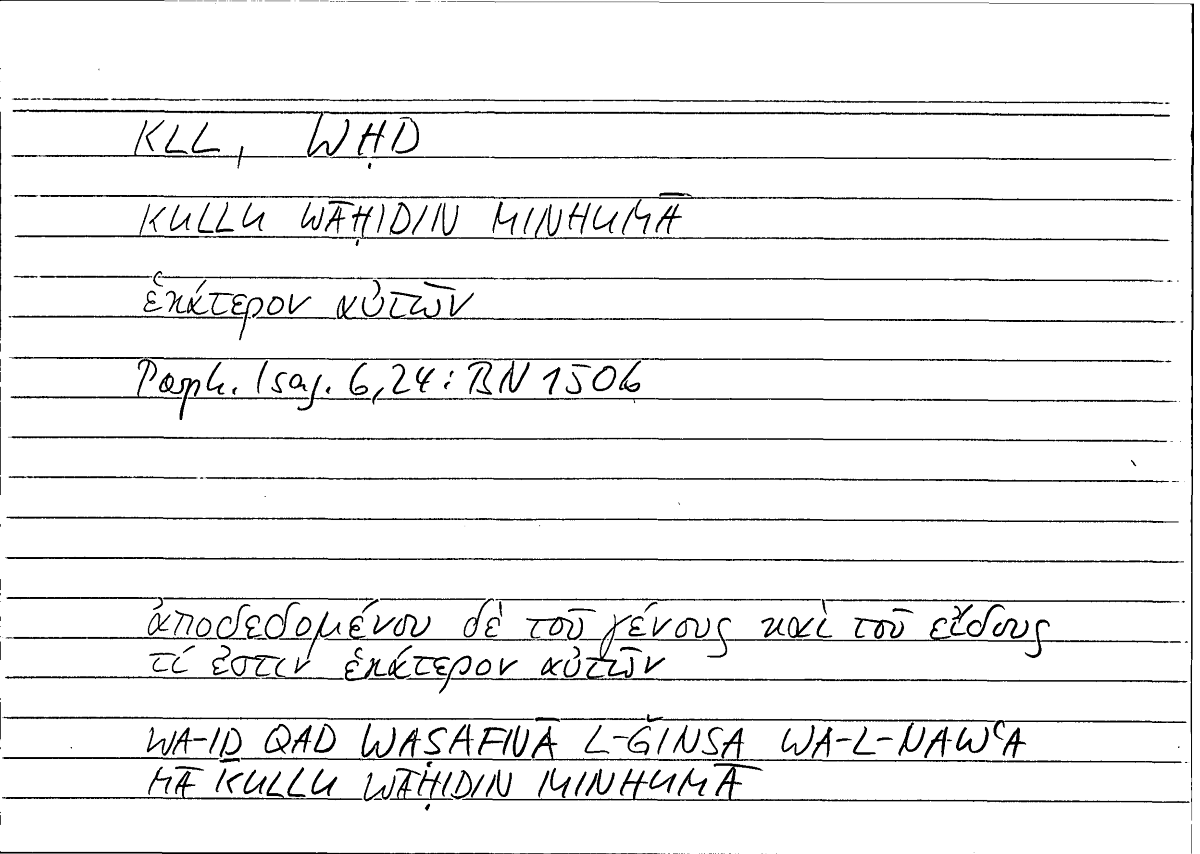 KLL, WḤD
KULLU WĀḤIDIN MINHUMĀ
ἑκάτερον αὐτῶν
Porph. Isag. 6,24: BN 150b
ἀποδεδομένου δὲ τοῦ γένους καὶ τοῦ εἴδους
τί ἐστιν ἑκάτερον αὐτῶν
WA-IḎ QAD WAṢAFNĀ L-ǦINSA WA-L-NAWʿA
MĀ KULLU WĀḤIDIN MINHUMĀ